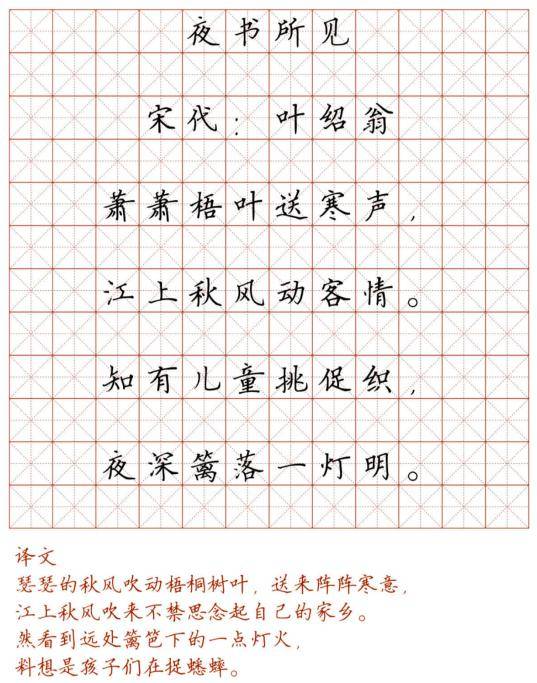 夜书所见
宋代：叶绍翁
萧萧梧叶送寒声，
江上秋风动客情。
知有儿童挑促织，
夜深篱落一灯明。
译文
瑟瑟的秋风吹动梧桐树叶，送来阵阵寒意，
江上秋风吹来不禁思念起自己的家乡。
然看到远处篱笆下的一点灯火，
料想是孩子们在捉蟋蟀。